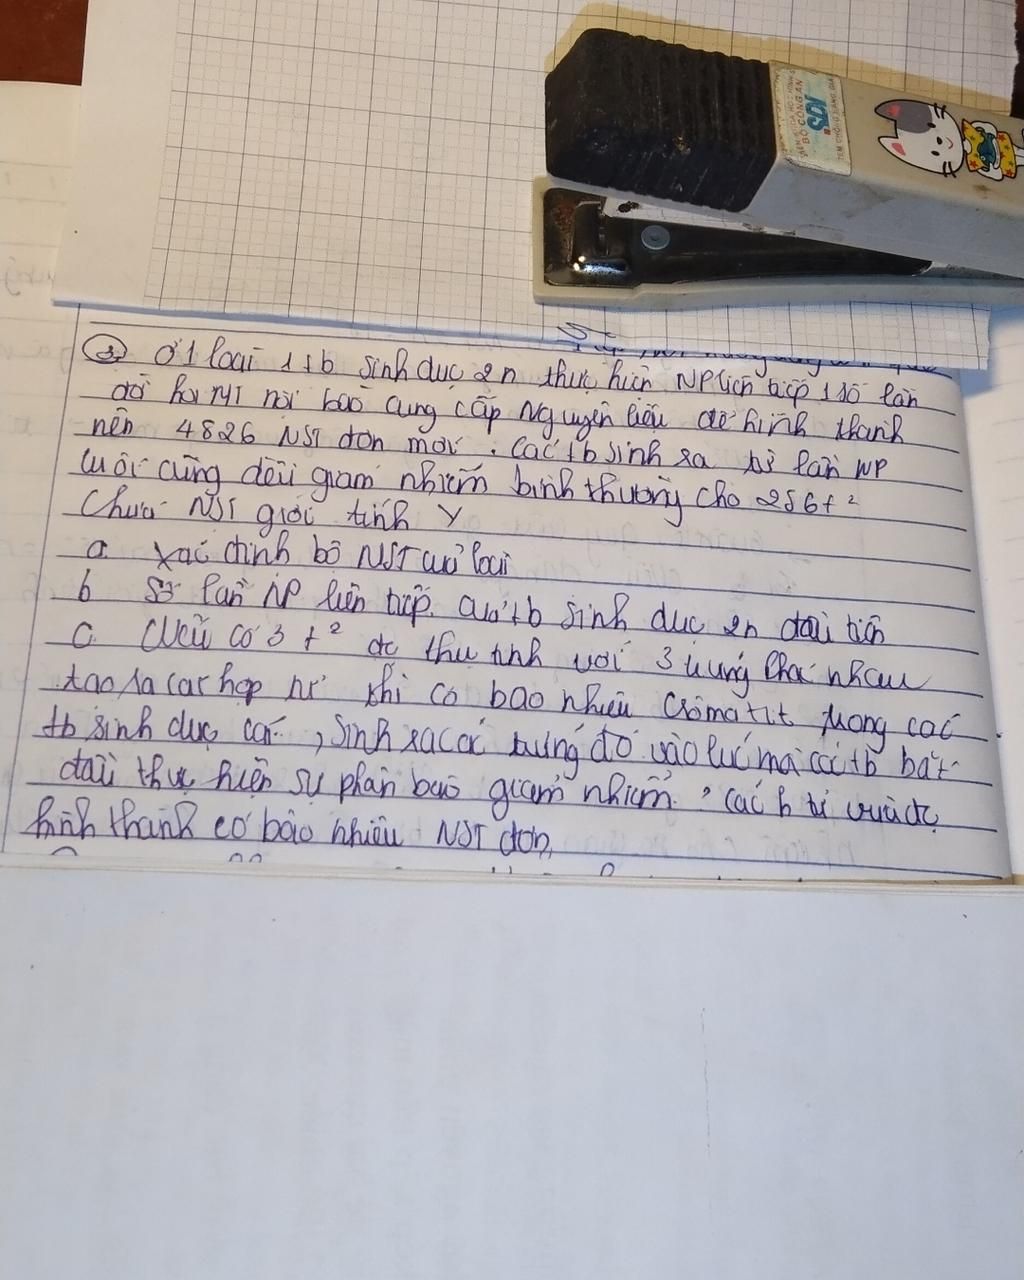 BỘ CÔNG AN
③ Ở 1 loài 1 tb sinh dục 2n thực hiện NP liên tiếp 1 số lần
đòi hỏi MT nội bào cung cấp nguyên liệu để hình thành
nên 4826 NST đơn mới. Các tb sinh ra từ lần NP
cuối cùng đều giảm nhiễm bình thường cho 256 t²
chứa NST giới tính Y
a xác định bộ NST của loài
b Số lần NP liên tiếp của tb sinh dục 2n đầu tiên
c. Nếu có 3 t² đc thụ tinh với 3 trứng khác nhau
tạo ra các hợp tử thì có bao nhiêu Crômatit trong các
tb sinh dục cái, sinh ra các trứng đó vào lúc mà các tb bắt
đầu thực hiện sự phân bào giảm nhiễm, các h tử vừa đc
hình thành có bao nhiêu NST đơn,